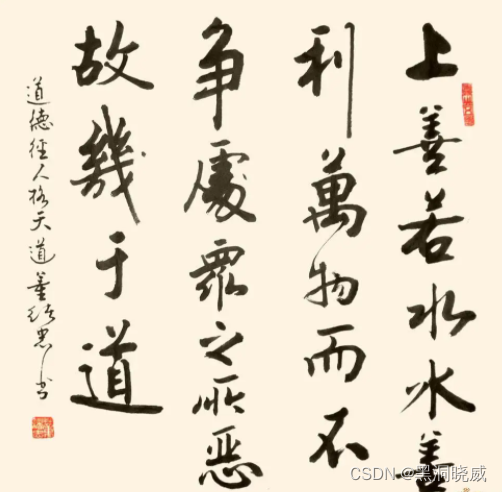 上善若水水善
利萬物而不
争處眾之所惡
故幾于道
道德经人格天道董书
CSDN @黑洞晓威